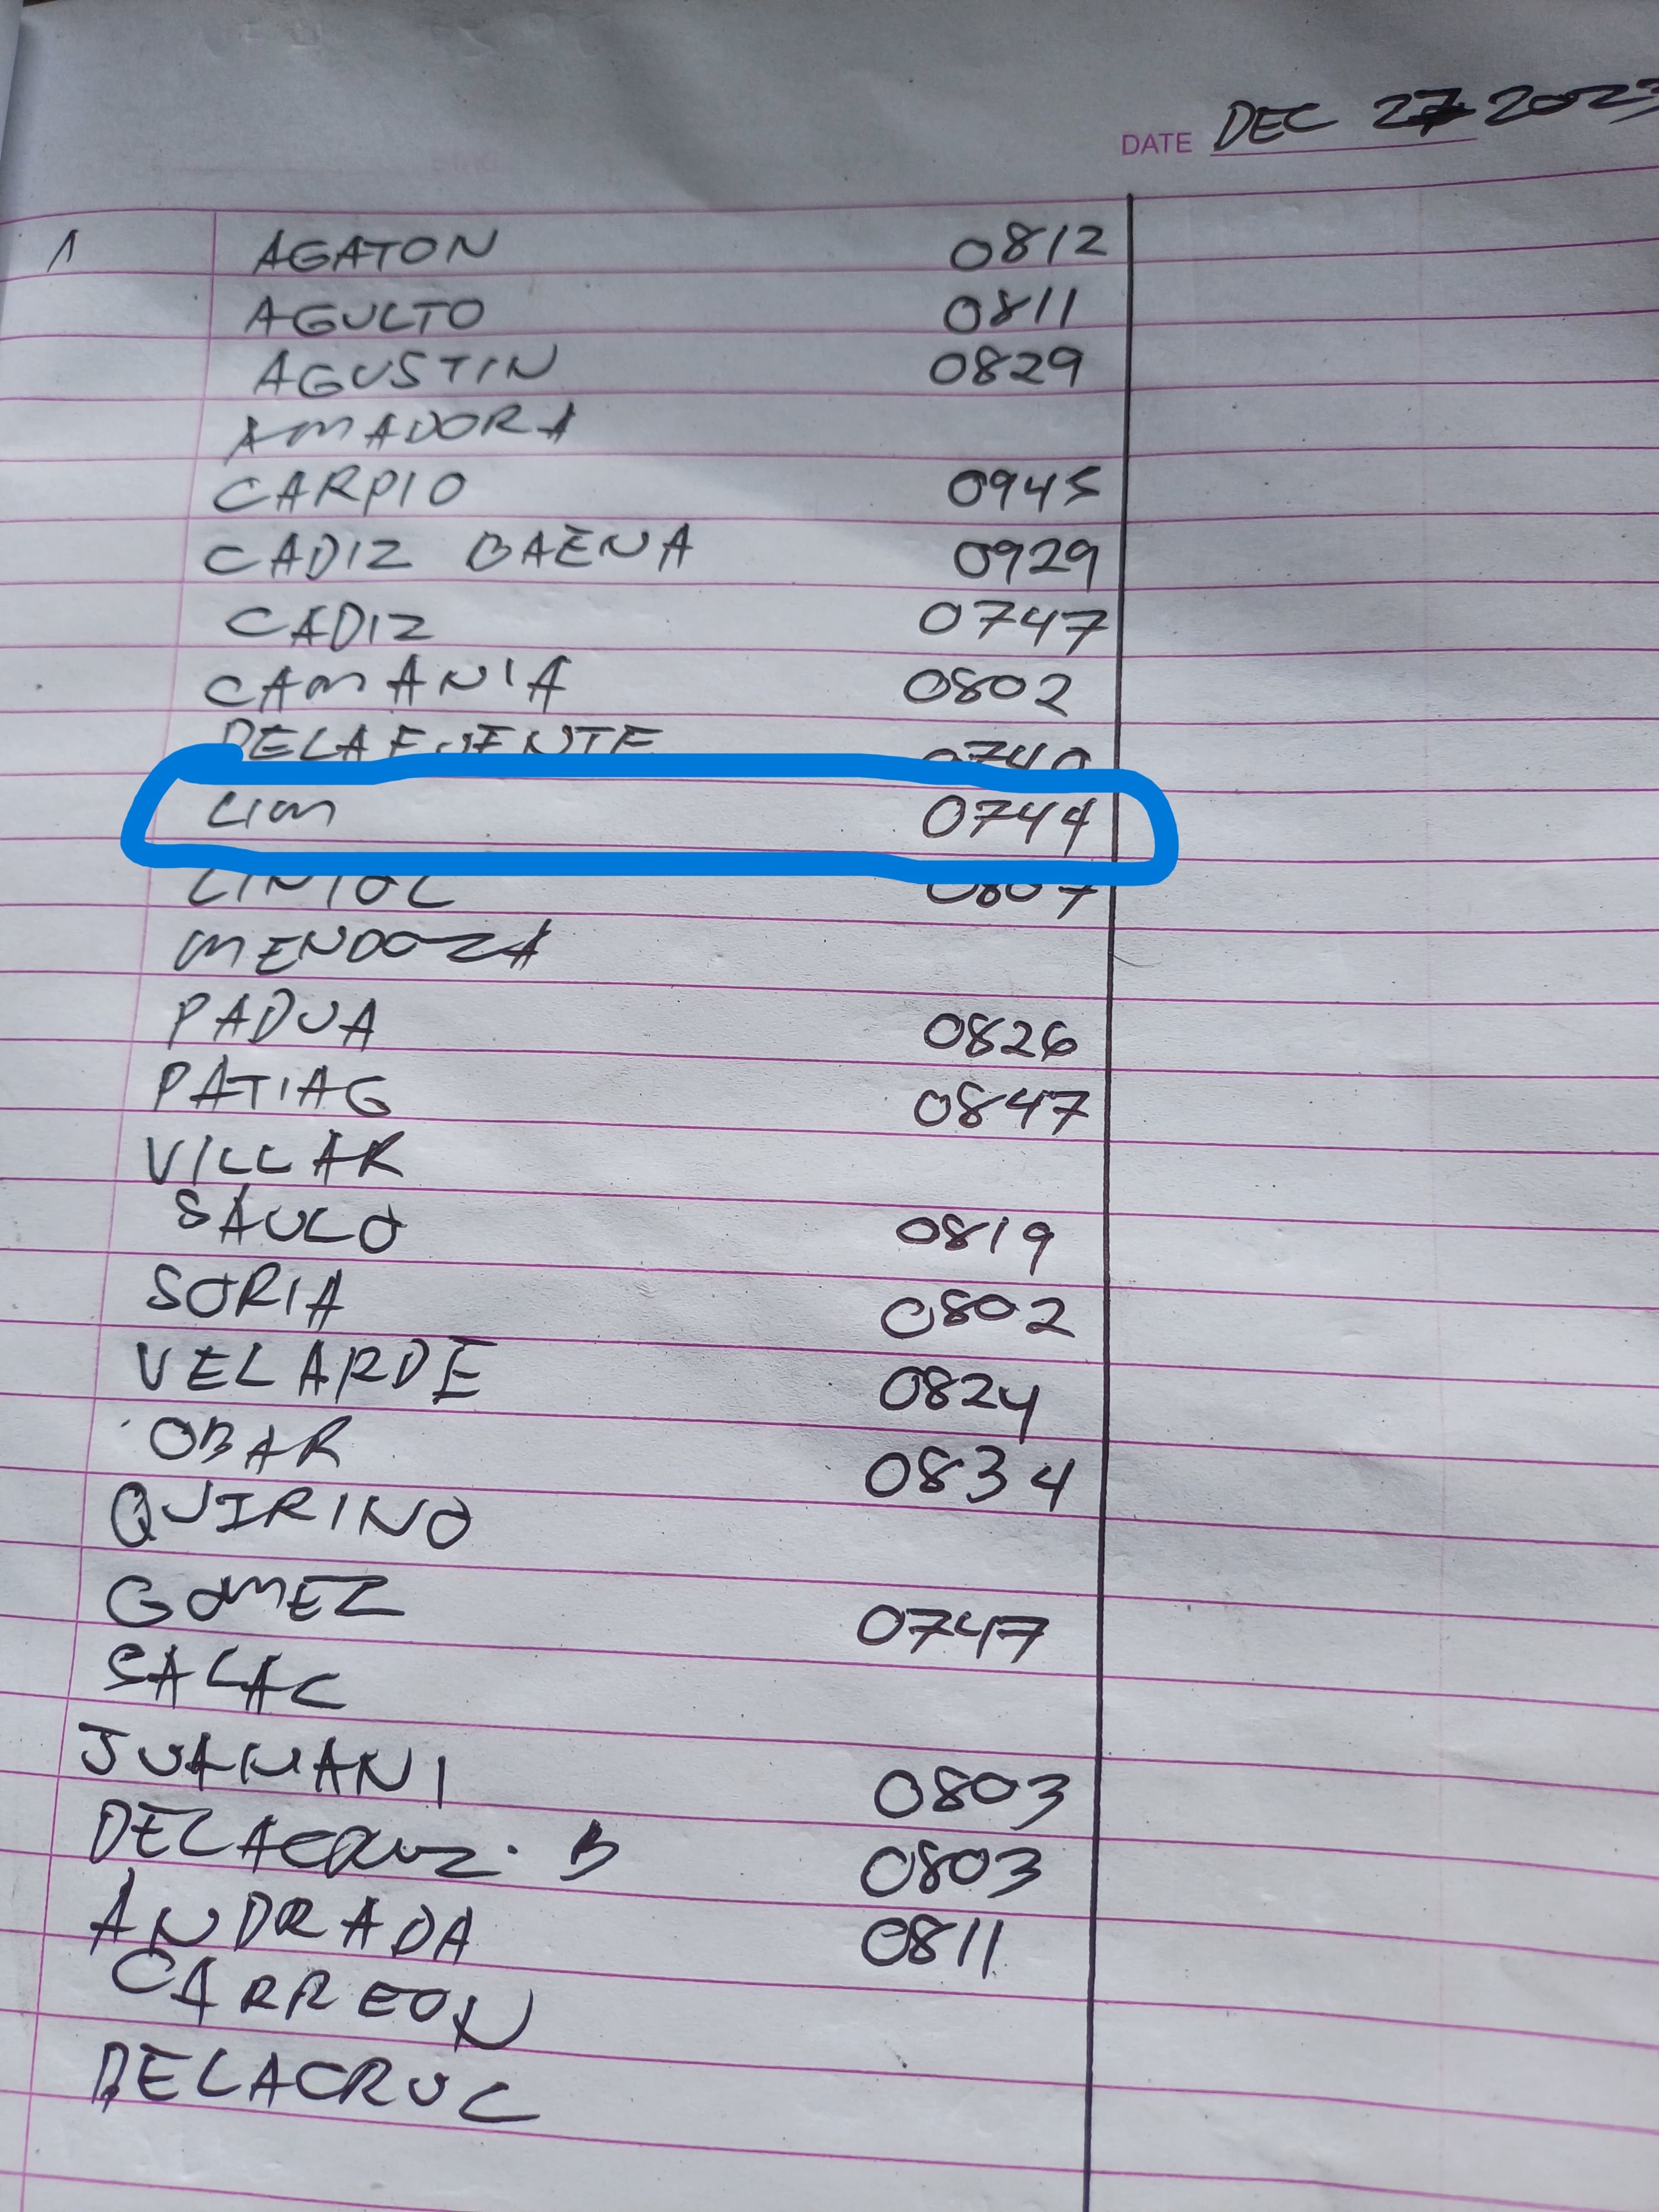 DATE DEC 27 2023
1 AGATON 0812
AGULTO 0811
AGUSTIN 0829
AMADORA
CARPIO 0945
CADIZ BAENA 0929
CADIZ 0747
CAMANIA 0802
DELAFUENTE
LIM 0744
0807
MENDOZA
PADUA 0826
PATIAG 0847
VILLAR
SAULO 0819
SORIA 0802
VELARDE 0824
OBAR 0834
QUIRINO
GOMEZ 0747
SALAC
JUAMANI 0803
DELACRUZ. B 0803
ANDRADA 0811
CARREON
DELACRUC